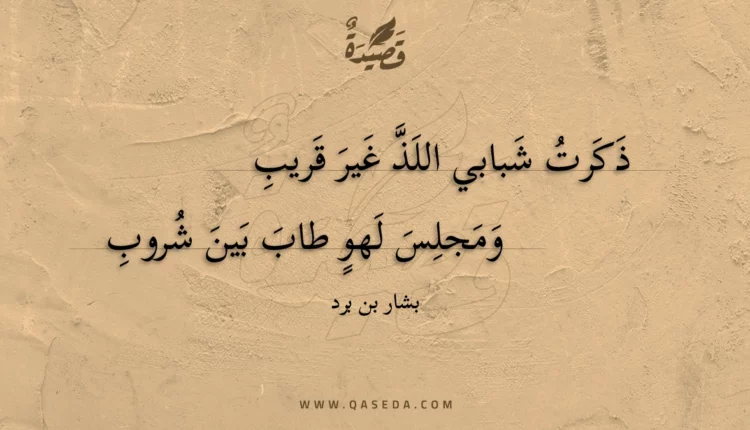 قَصِيدَةٌ
ذَكَرتُ شَبابي اللَذَّ غَيرَ قَريبِ
وَمَجلِسَ لَهوٍ طابَ بَينَ شُروبِ
بشار بن برد
WWW.QASEDA.COM